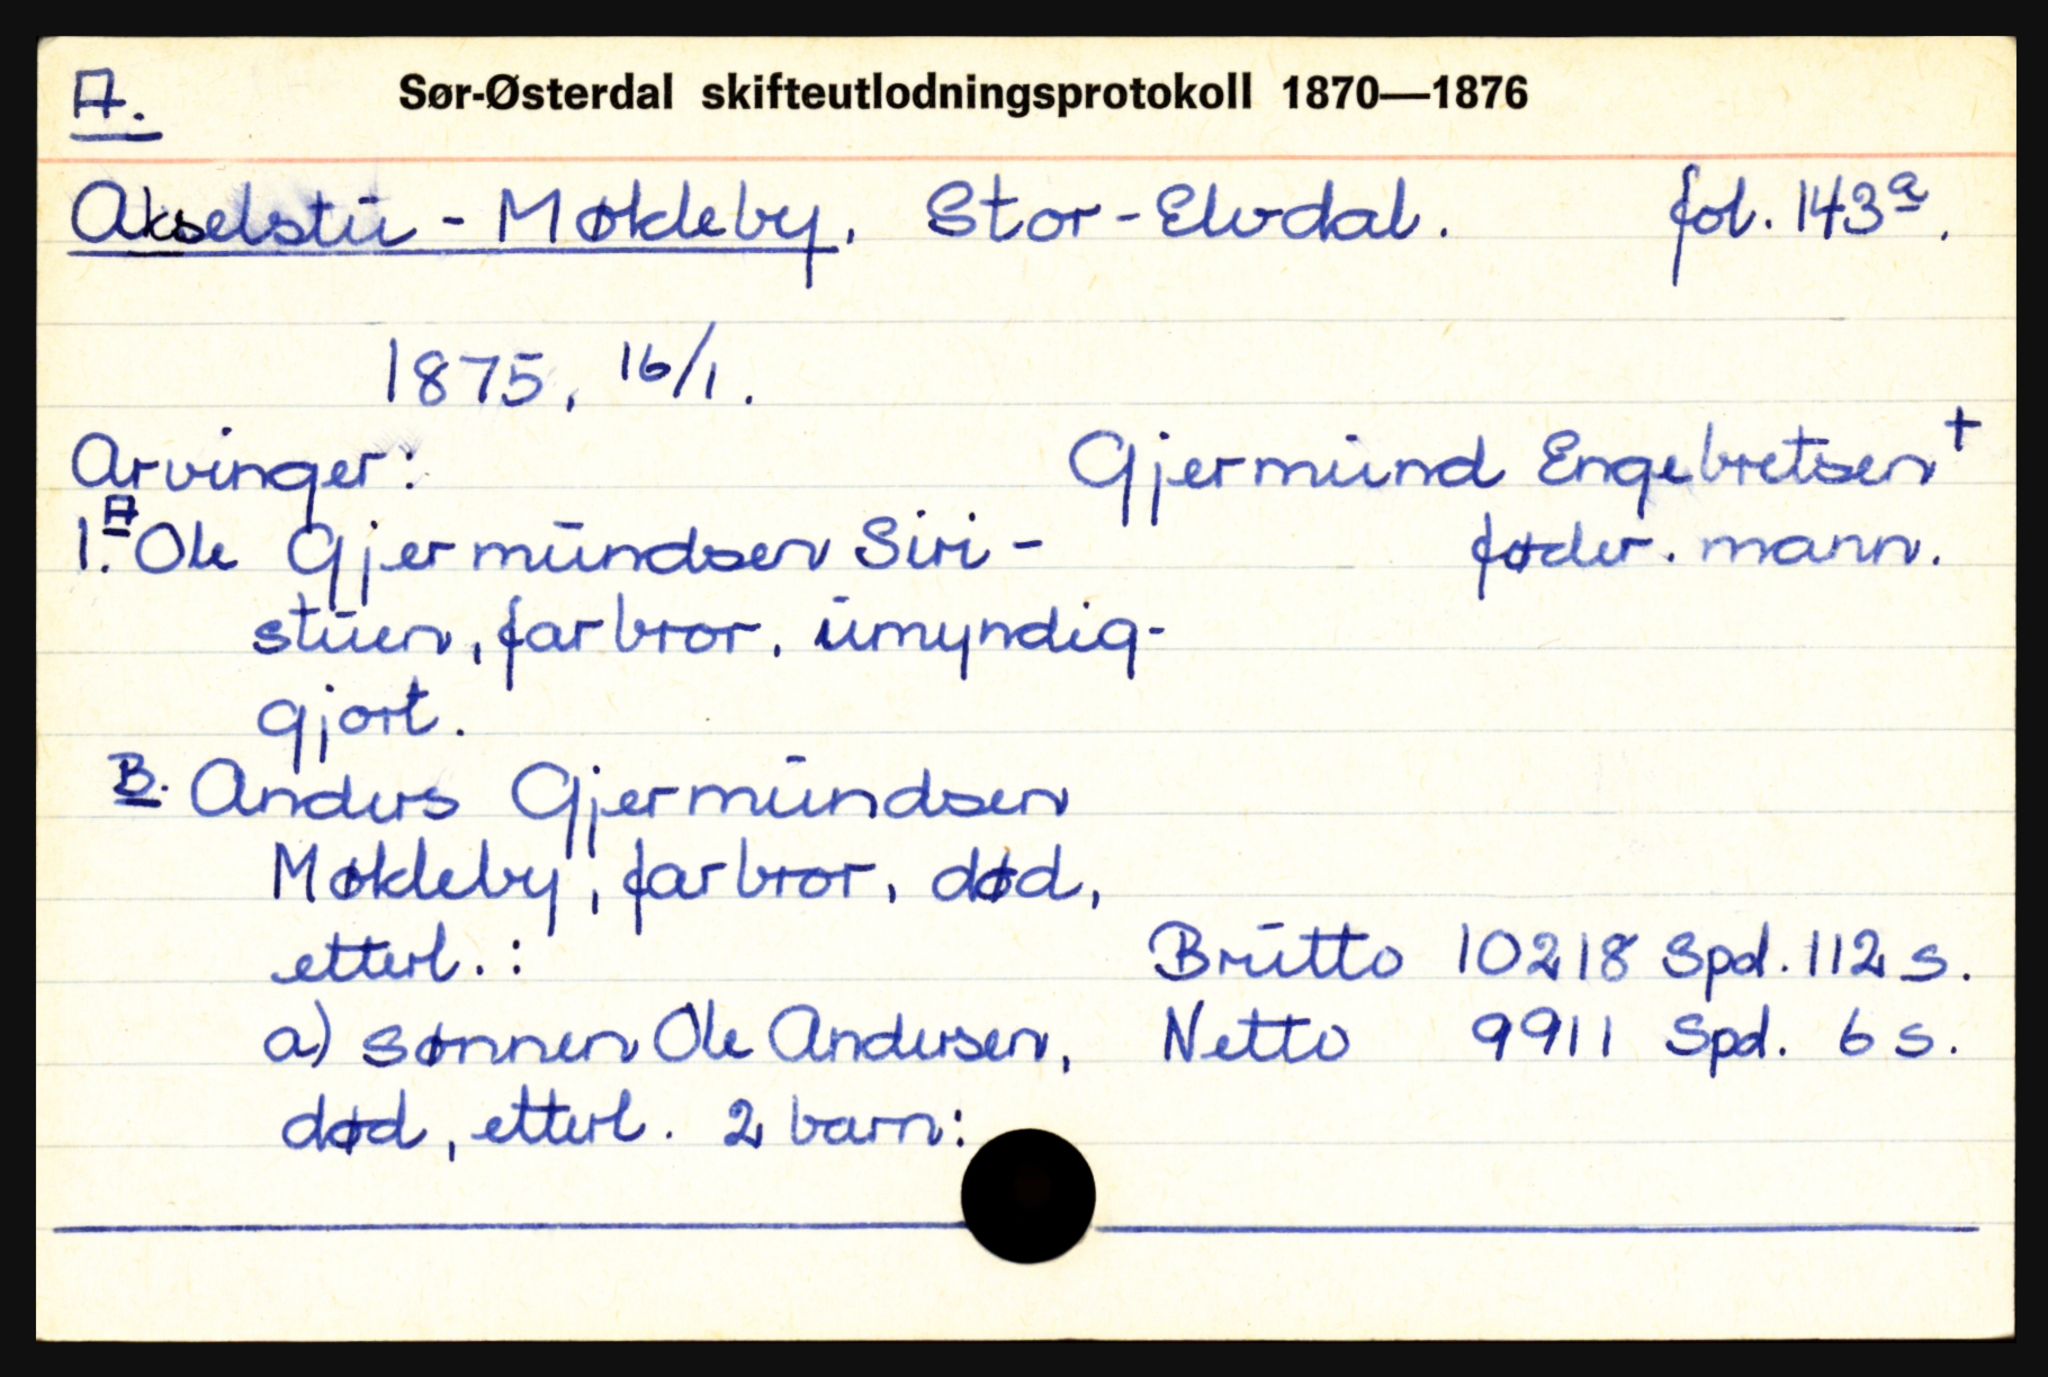 A.
Sør-Østerdal skifteutlodningsprotokoll 1870—1876
Akselstu - Møkleby, Stor-Elvdal. fol. 143a.
1875, 16/1.
Arvinger: Gjermund Engebretsen +
1. A Ole Gjermundsen Siri- føder. mann.
stuen, farbror, umyndig-
gjort.
B. Anders Gjermundsen
Møkleby, farbror, død,
etterl.: Brutto 10218 Spd. 112 s.
a) sønnen Ole Andersen, Netto 9911 Spd. 6 s.
død, etterl. 2 barn: